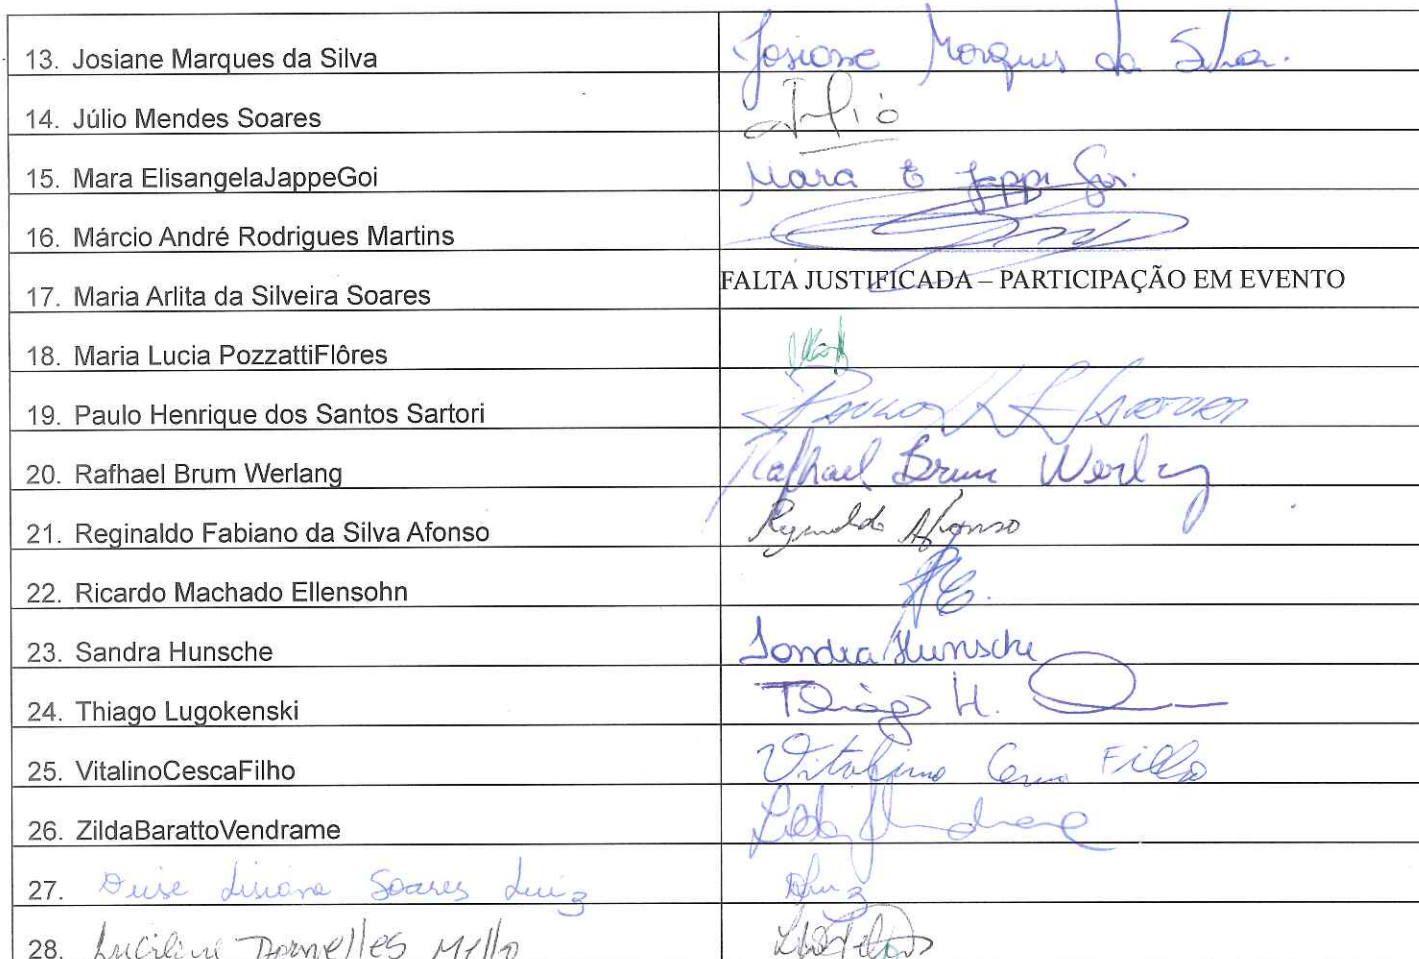 13. Josiane Marques da Silva Josiane Marques da Silva.
14. Júlio Mendes Soares Júlio
15. Mara ElisangelaJappeGoi Mara E Jappe Goi.
16. Márcio André Rodrigues Martins
17. Maria Arlita da Silveira Soares FALTA JUSTIFICADA – PARTICIPAÇÃO EM EVENTO
18. Maria Lucia PozzattiFlôres
19. Paulo Henrique dos Santos Sartori Paulo H S Sartori
20. Rafhael Brum Werlang Rafhael Brum Werlang
21. Reginaldo Fabiano da Silva Afonso Reginaldo Afonso
22. Ricardo Machado Ellensohn RE.
23. Sandra Hunsche Sandra Hunsche
24. Thiago Lugokenski Thiago H.
25. VitalinoCescaFilho Vitalino Cesca Filho
26. ZildaBarattoVendrame Zilda Vendrame
27. Deise Lisiane Soares Luiz DLuiz
28. Luciline Dornelles Mello